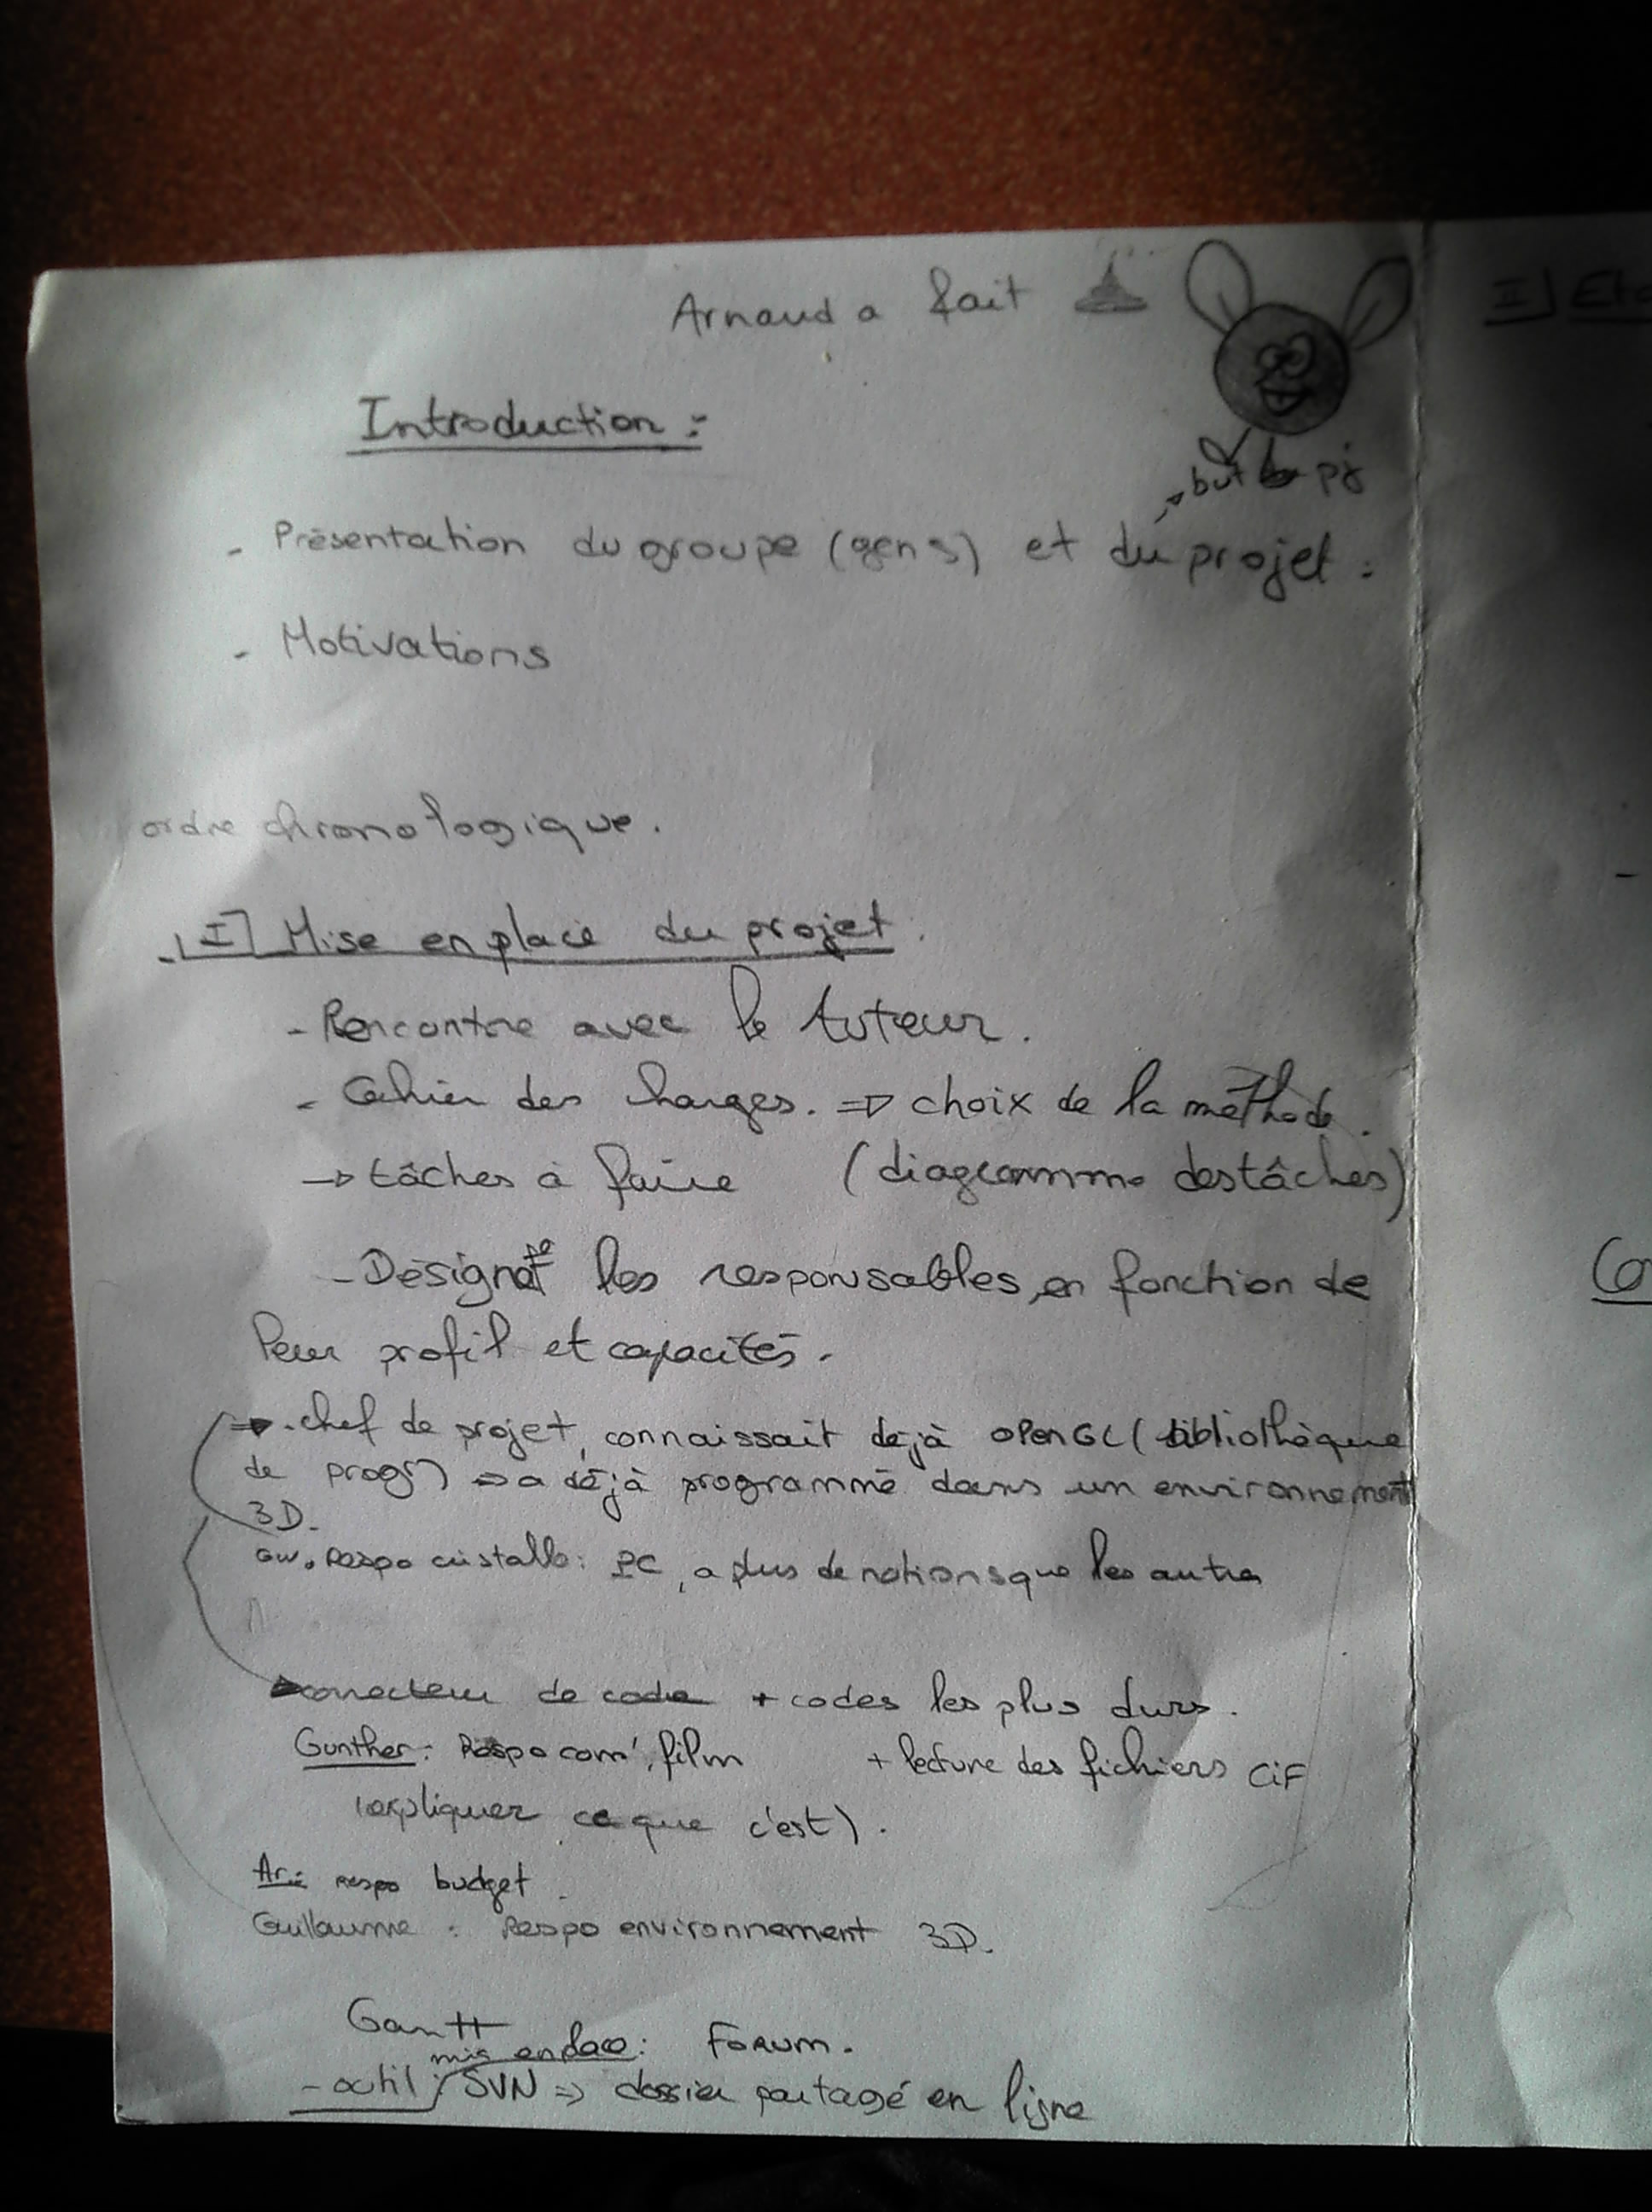 Arnaud a fait
Introduction :
but pj
- Présentation du groupe (gens) et du projet :
- Motivations
ordre chronologique.
I] Mise en place du projet.
- Rencontre avec le tuteur.
- Cahier des charges. => choix de la méthode.
-> tâches à faire (diagramme des tâches)
- Désigné les responsables, en fonction de
leur profil et capacités.
-> . chef de projet, connaissait déjà openGL (bibliothèque
de progr) => a déjà programmé dans un environnement
3D.
Gw. Respo cristallo : PC, a plus de notions que les autres
correcteur de code + codes les plus durs.
Gunther : Respo com', film + lecture des fichiers CiF
(expliquer ce que c'est).
Ar.: respo budget.
Guillaume : Respo environnement 3D.
Gantt
- outil mis en place : Forum.
SVN => dossier partagé en ligne
I] Et
-
Co